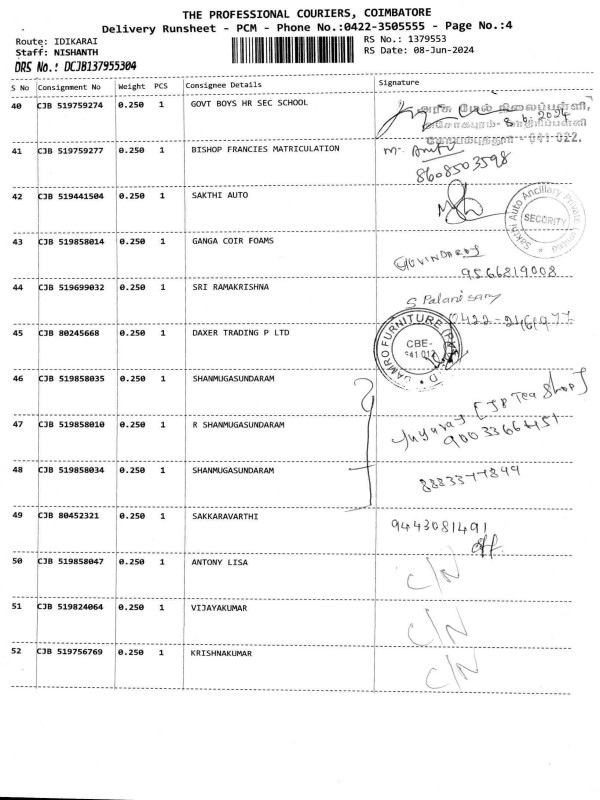 THE PROFESSIONAL COURIERS, COIMBATORE
Delivery Runsheet - PCM - Phone No.:0422-3505555 - Page No.:4
Route: IDIKARAI RS No.: 1379553
Staff: NISHANTH RS Date: 08-Jun-2024
DRS No.: DCJB137955304
S No Consignment No Weight PCS Consignee Details Signature
40 CJB 519759274 0.250 1 GOVT BOYS HR SEC SCHOOL
அரசு மேல் நிலைப்பள்ளி,
8.6.2024
641 022.
41 CJB 519759277 0.250 1 BISHOP FRANCIES MATRICULATION
8608503598
42 CJB 519441504 0.250 1 SAKTHI AUTO
Sakthi Auto Ancillary Private Limited
SECURITY
43 CJB 519858014 0.250 1 GANGA COIR FOAMS
GOVINDARAJ
9566819008
44 CJB 519699032 0.250 1 SRI RAMAKRISHNA
S Palanisamy
45 CJB 80245668 0.250 1 DAXER TRADING P LTD
0422-2461977
DAMRO FURNITURE
CBE-
641 017
46 CJB 519858035 0.250 1 SHANMUGASUNDARAM
47 CJB 519858010 0.250 1 R SHANMUGASUNDARAM
[JP Tea Shop]
9003366451
48 CJB 519858034 0.250 1 SHANMUGASUNDARAM
8883377849
49 CJB 80452321 0.250 1 SAKKARAVARTHI
9443081491
50 CJB 519858047 0.250 1 ANTONY LISA
C/N
51 CJB 519824064 0.250 1 VIJAYAKUMAR
C/N
52 CJB 519756769 0.250 1 KRISHNAKUMAR
C/N